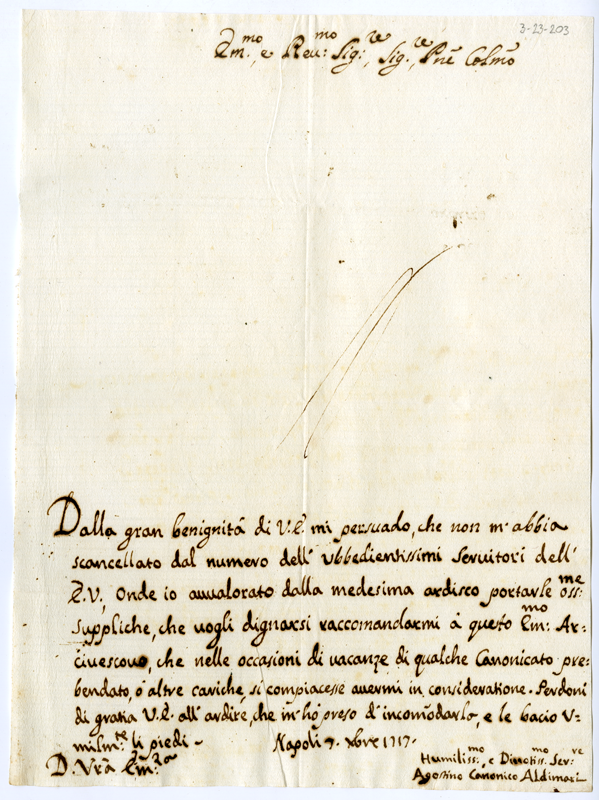 3-23-203
Em.mo, e Reu:mo Sig:re, Sig.re Pñe Colmõ
Dalla gran benignità di V.E. mi persuado, che non m'abbia
scancellato dal numero dell' ubbedientissimi seruitori dell'
E.V., Onde io auualorato dalla medesima ardisco portarle oss:me
suppliche, che uogli dignarsi raccomandarmi à questo Em:mo Ar-
ciuescouo, che nelle occasioni di uacanze di qualche Canonicato pre-
bendato, ò altre cariche, si compiacesse auermi in consideratione. Perdoni
di gratia V.E. all' ardire, che m'hò preso d' incomõdarlo, e le bacio V-
milm.te li piedi - Napoli 7. Xbre 1717.
D. Vrã Em:za
Humiliss:mo, e Diuotiss:mo Ser:re
Agostino Canonico Aldimari